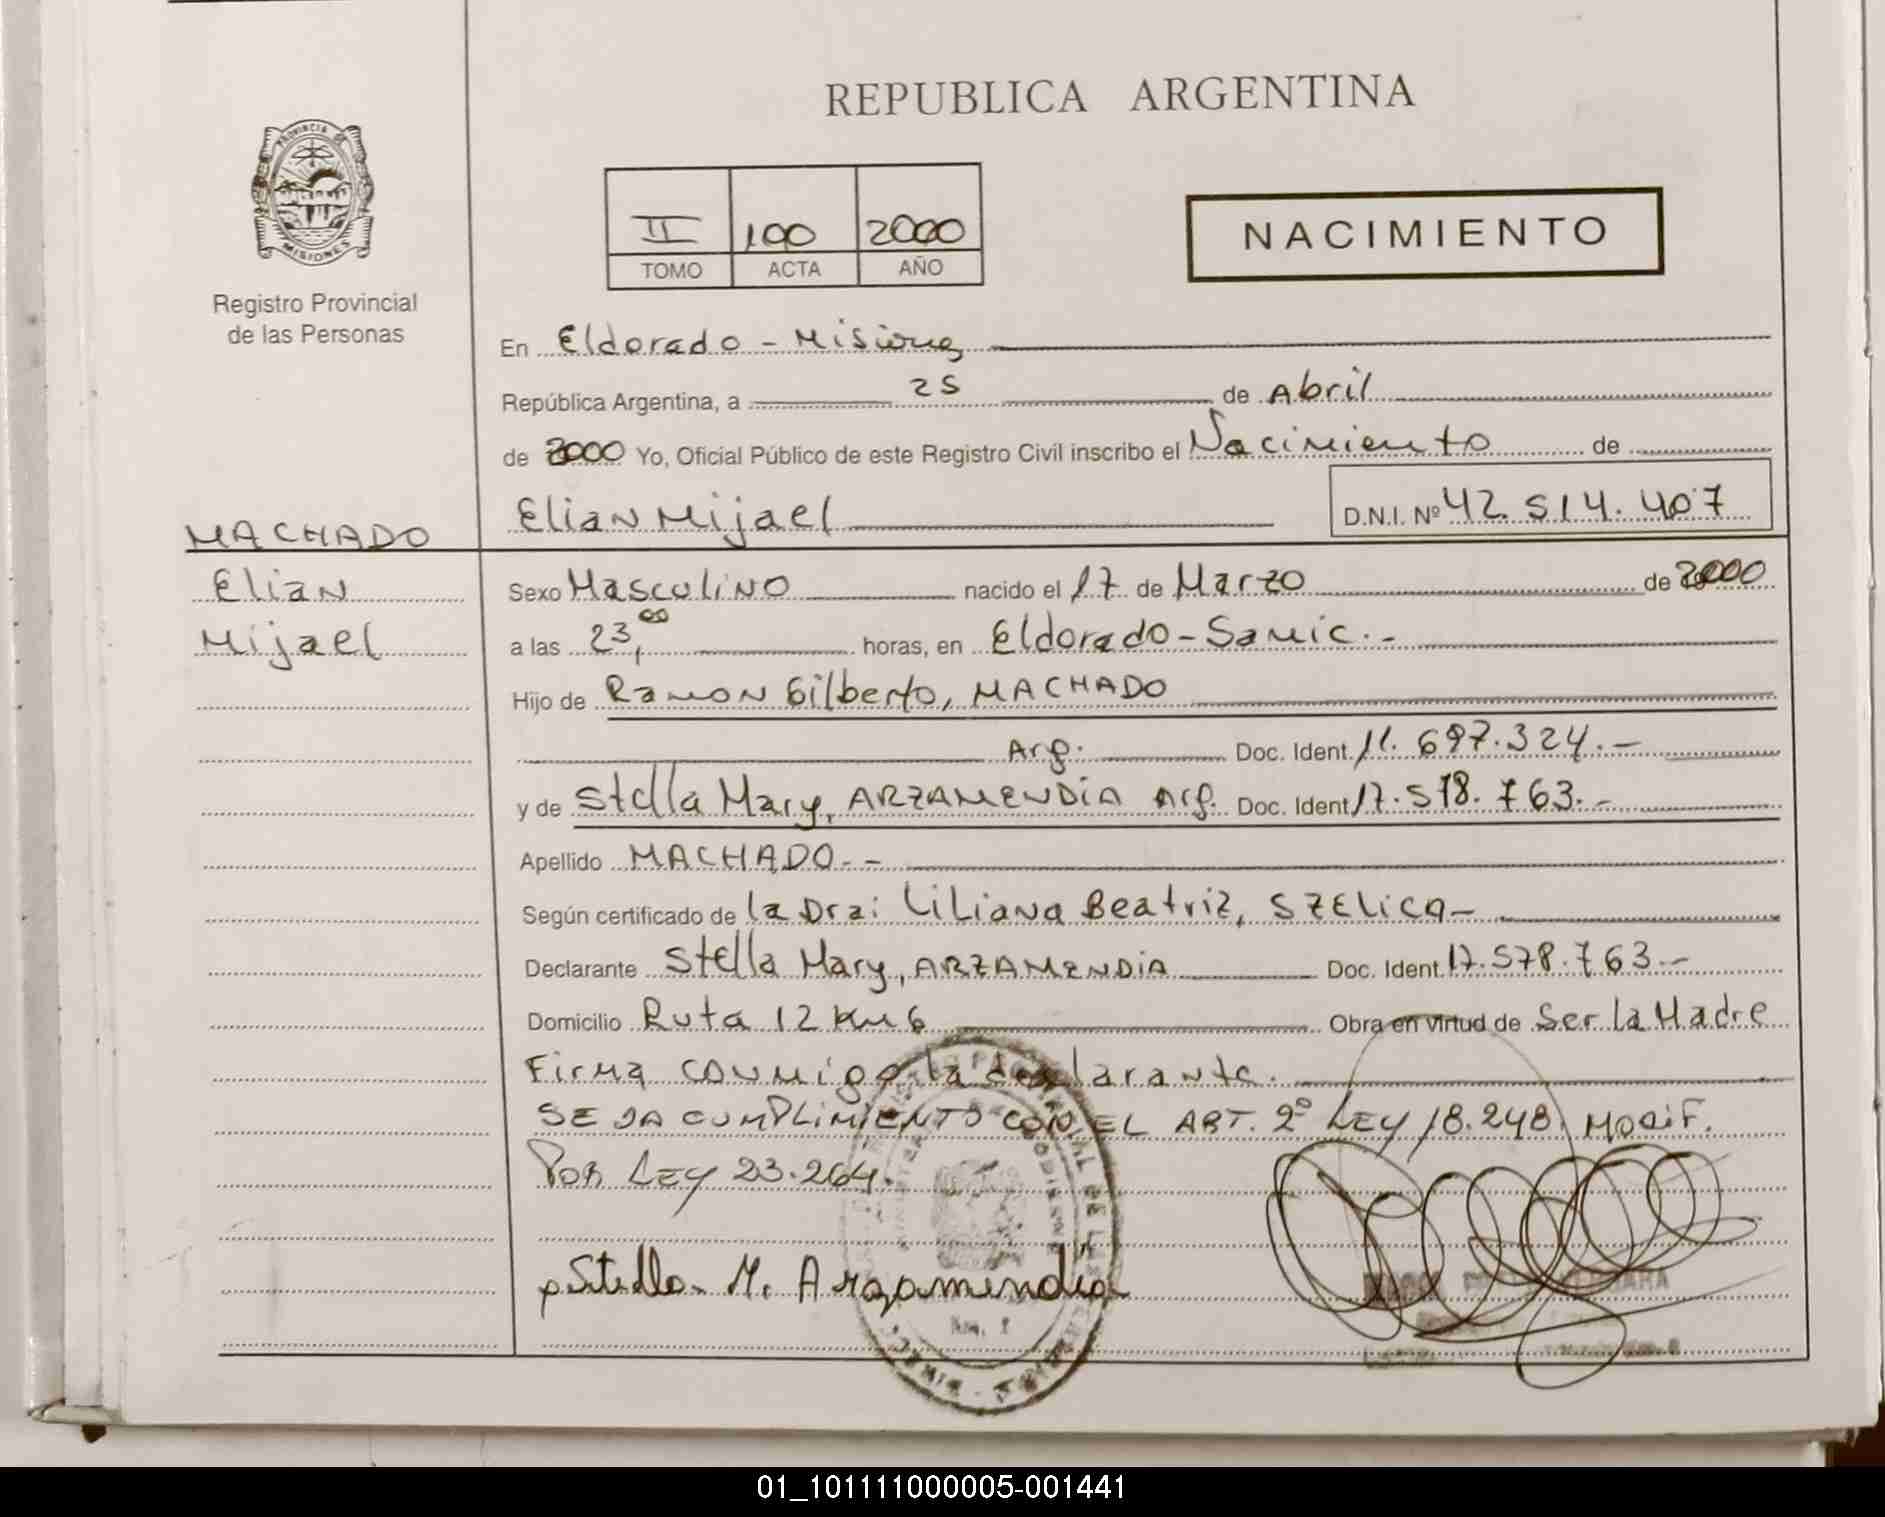 REPUBLICA ARGENTINA
PROVINCIA DE MISIONES
Registro Provincial
de las Personas
II 100 2000
TOMO ACTA AÑO
NACIMIENTO
En Eldorado - Misiones
República Argentina, a 25 de Abril
de 2000 Yo, Oficial Público de este Registro Civil inscribo el Nacimiento de
Elian Mijael D.N.I. Nº 42.514.407
MACHADO
Elian
Mijael
Sexo Masculino nacido el 17 de Marzo de 2000
a las 23,00 horas, en Eldorado - Samic.-
Hijo de Ramon Gilberto, MACHADO
Arg. Doc. Ident. 11.697.324.-
y de Stella Mary, ARZAMENDIA Arg. Doc. Ident 17.578.763.-
Apellido MACHADO.--
Según certificado de la Dra: Liliana Beatriz, SZELICA-
Declarante Stella Mary, ARZAMENDIA Doc. Ident. 17.578.763.-
Domicilio Ruta 12 Km 6 Obra en virtud de Ser la Madre
Firma conmigo la declarante.
SE DA CUMPLIMIENTO CON EL ART. 2º LEY 18.248. MODIF.
POR LEY 23.264.
Stella M. Arzamendia
01_101111000005-001441